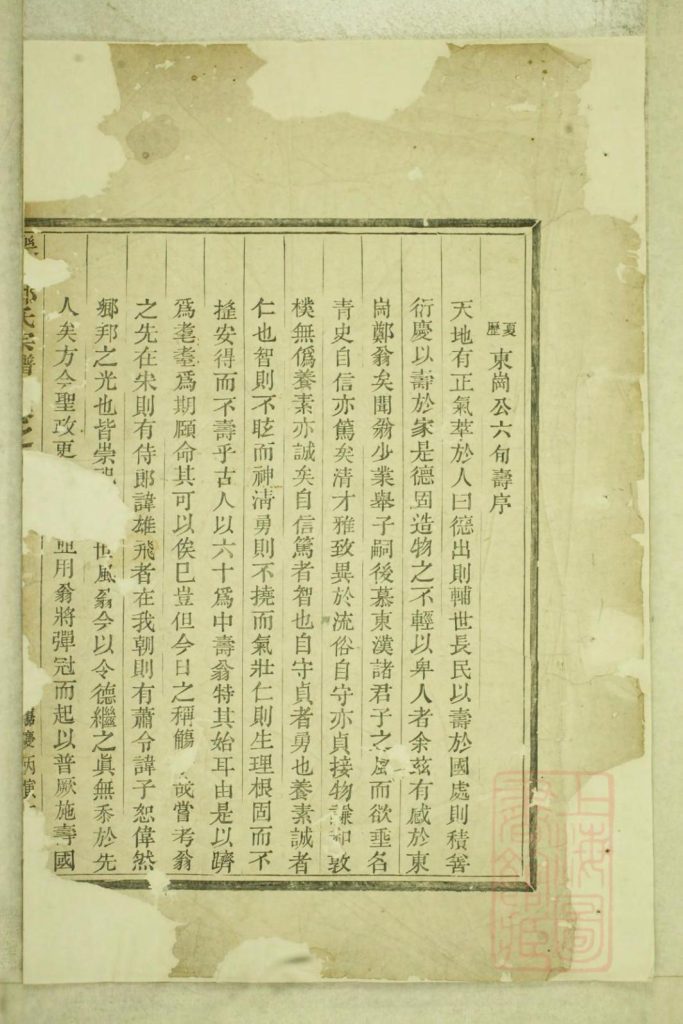 夏歷東崗公六旬壽序
天地有正氣萃於人曰德出則輔世長民以壽於國處則積善
衍慶以壽於家是德固造物之不輕以畀人者余茲有感於東
崗鄭翁矣聞翁少業舉子嗣後慕東漢諸君子之風而欲垂名
青史自信亦篤矣清才雅致異於流俗自守亦貞接物謙和敦
樸無僞養素亦誠矣自信篤者智也自守貞者勇也養素誠者
仁也智則不眩而神清勇則不撓而氣壯仁則生理根固而不
搖安得而不壽乎古人以六十爲中壽翁特其始耳由是以躋
爲耄耋爲期頤命其可以俟已豈但今日之稱觴 哉嘗考翁
之先在宋則有侍郎諱雄飛者在我朝則有蕭令諱子恕偉然
鄉邦之光也皆崇祀 世風翁今以令德繼之眞無忝於先
人矣方今聖改更 並用翁將彈冠而起以普厥施壽國
氏宗譜